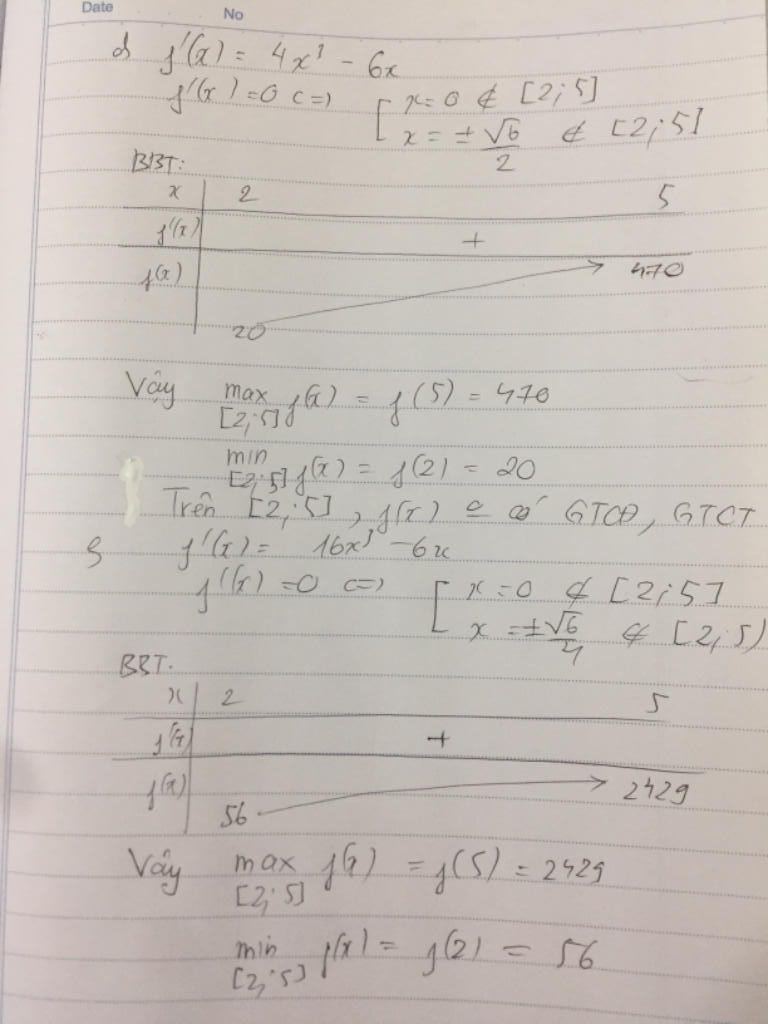 Date No
d f'(x) = 4x³ - 6x
f'(x) = 0 <=> [ x = 0 ∉ [2; 5]
x = ± √6/2 ∉ [2; 5]
BBT:
x 2 5
f'(x) +
f(x) 20 470
Vậy max f(x) = f(5) = 470
[2; 5]
min f(x) = f(2) = 20
[2; 5]
Trên [2; 5], f(x) có GTCĐ, GTCT
f'(x) = 16x³ - 6x
f'(x) = 0 <=> [ x = 0 ∉ [2; 5]
x = ± √6/4 ∉ [2; 5)
BBT.
x 2 5
f'(x) +
f(x) 56 2429
Vậy max f(x) = f(5) = 2429
[2; 5]
min f(x) = f(2) = 56
[2; 5]